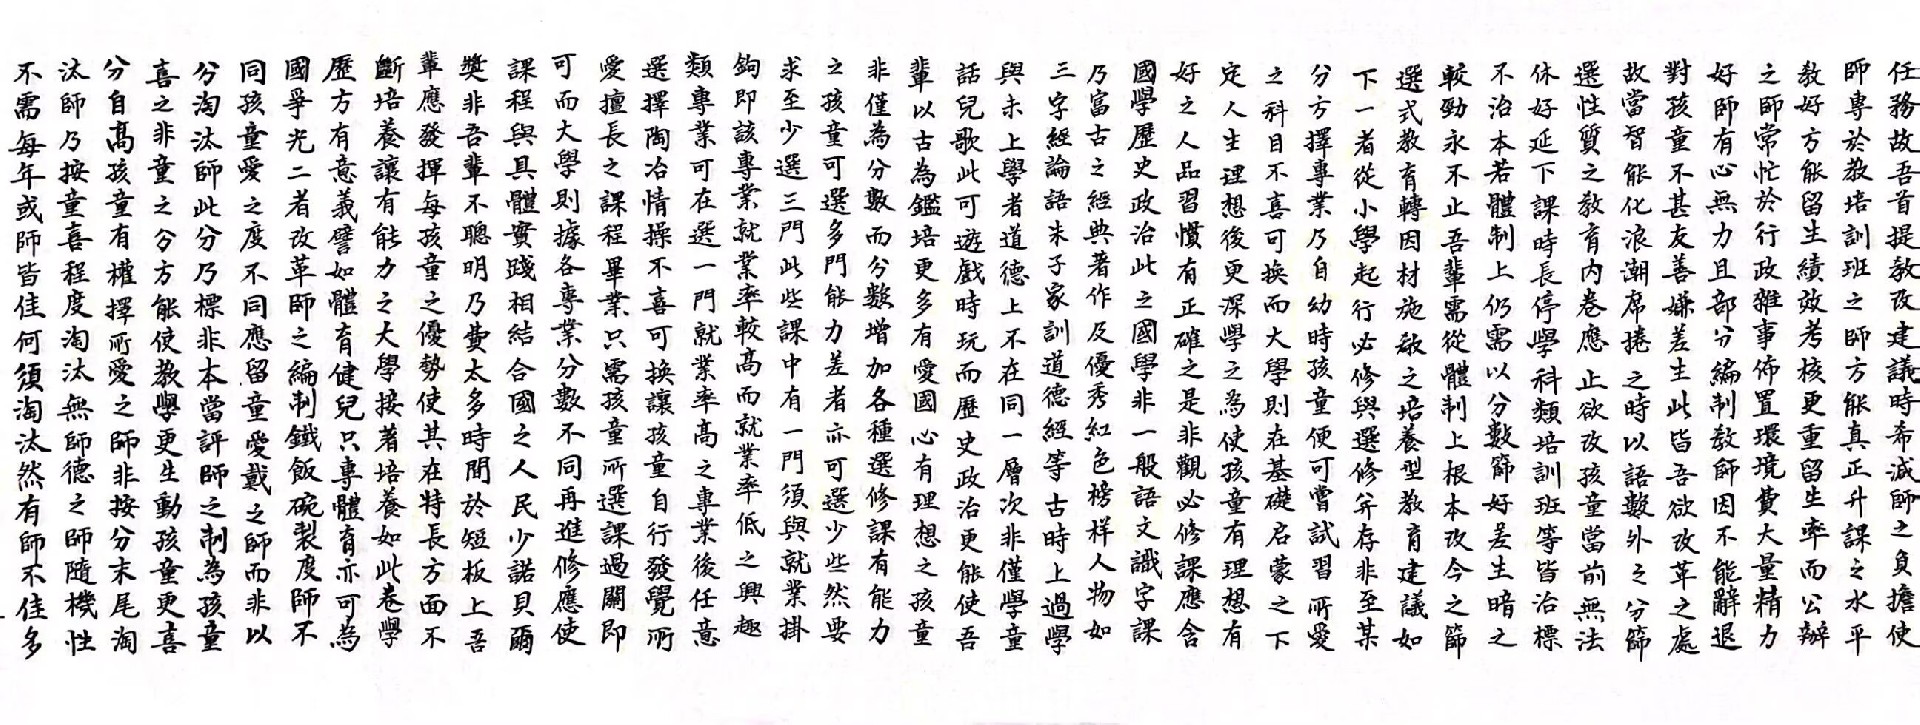 任務故吾首提教改建議時希減師之負擔使
師專於教培訓班之師方能真正升課之水平
教好方能留生績效考核更重留生率而公辦
之師常忙於行政雜事佈置環境費大量精力
好師有心無力且部分編制教師因不能辭退
對孩童不甚友善嫌差生此皆吾欲改革之處
故當智能化浪潮席捲之時以語數外之分篩
選性質之教育內卷應止欲改孩童當前無法
休好延下課時長停學科類培訓班等皆治標
不治本若體制上仍需以分數篩好差生暗之
較勁永不止吾輩需從體制上根本改今之篩
選式教育轉因材施啟之培養型教育建議如
下一者從小學起行必修與選修并存非至某
分方擇專業乃自幼時孩童便可嘗試習所愛
之科目不喜可換而大學則在基礎启蒙之下
定人生理想後更深學之為使孩童有理想有
好之人品習慣有正確之是非觀必修課應含
國學歷史政治此之國學非一般語文識字課
乃富古之經典著作及優秀紅色榜样人物如
三字經論語朱子家訓道德經等古時上過學
與未上學者道德上不在同一層次非僅學童
話兒歌此可遊戲時玩而歷史政治更能使吾
輩以古為鑑培更多有愛國心有理想之孩童
非僅為分數而分數增加各種選修課有能力
之孩童可選多門能力差者亦可選少些然要
求至少選三門此些課中有一門須與就業掛
鉤即該專業就業率較高而就業率低之興趣
類專業可在選一門就業率高之專業後任意
選擇陶冶情操不喜可換讓孩童自行發覺所
愛擅長之課程畢業只需孩童所選課過關即
可而大學則據各專業分數不同再進修應使
課程與具體實踐相結合國之人民少諾貝爾
獎非吾輩不聰明乃費太多時間於短板上吾
輩應發揮每孩童之優勢使其在特長方面不
斷培養讓有能力之大學接著培養如此卷學
歷方有意義譬如體育健兒只專體育亦可為
國爭光二者改革師之編制鐵飯碗製度師不
同孩童愛之度不同應留童愛戴之師而非以
分淘汰師此分乃標非本當評師之制為孩童
喜之非童之分方能使教學更生動孩童更喜
分自高孩童有權擇所愛之師非按分末尾淘
汰師乃按童喜程度淘汰無師德之師隨機性
不需每年或師皆佳何須淘汰然有師不佳多